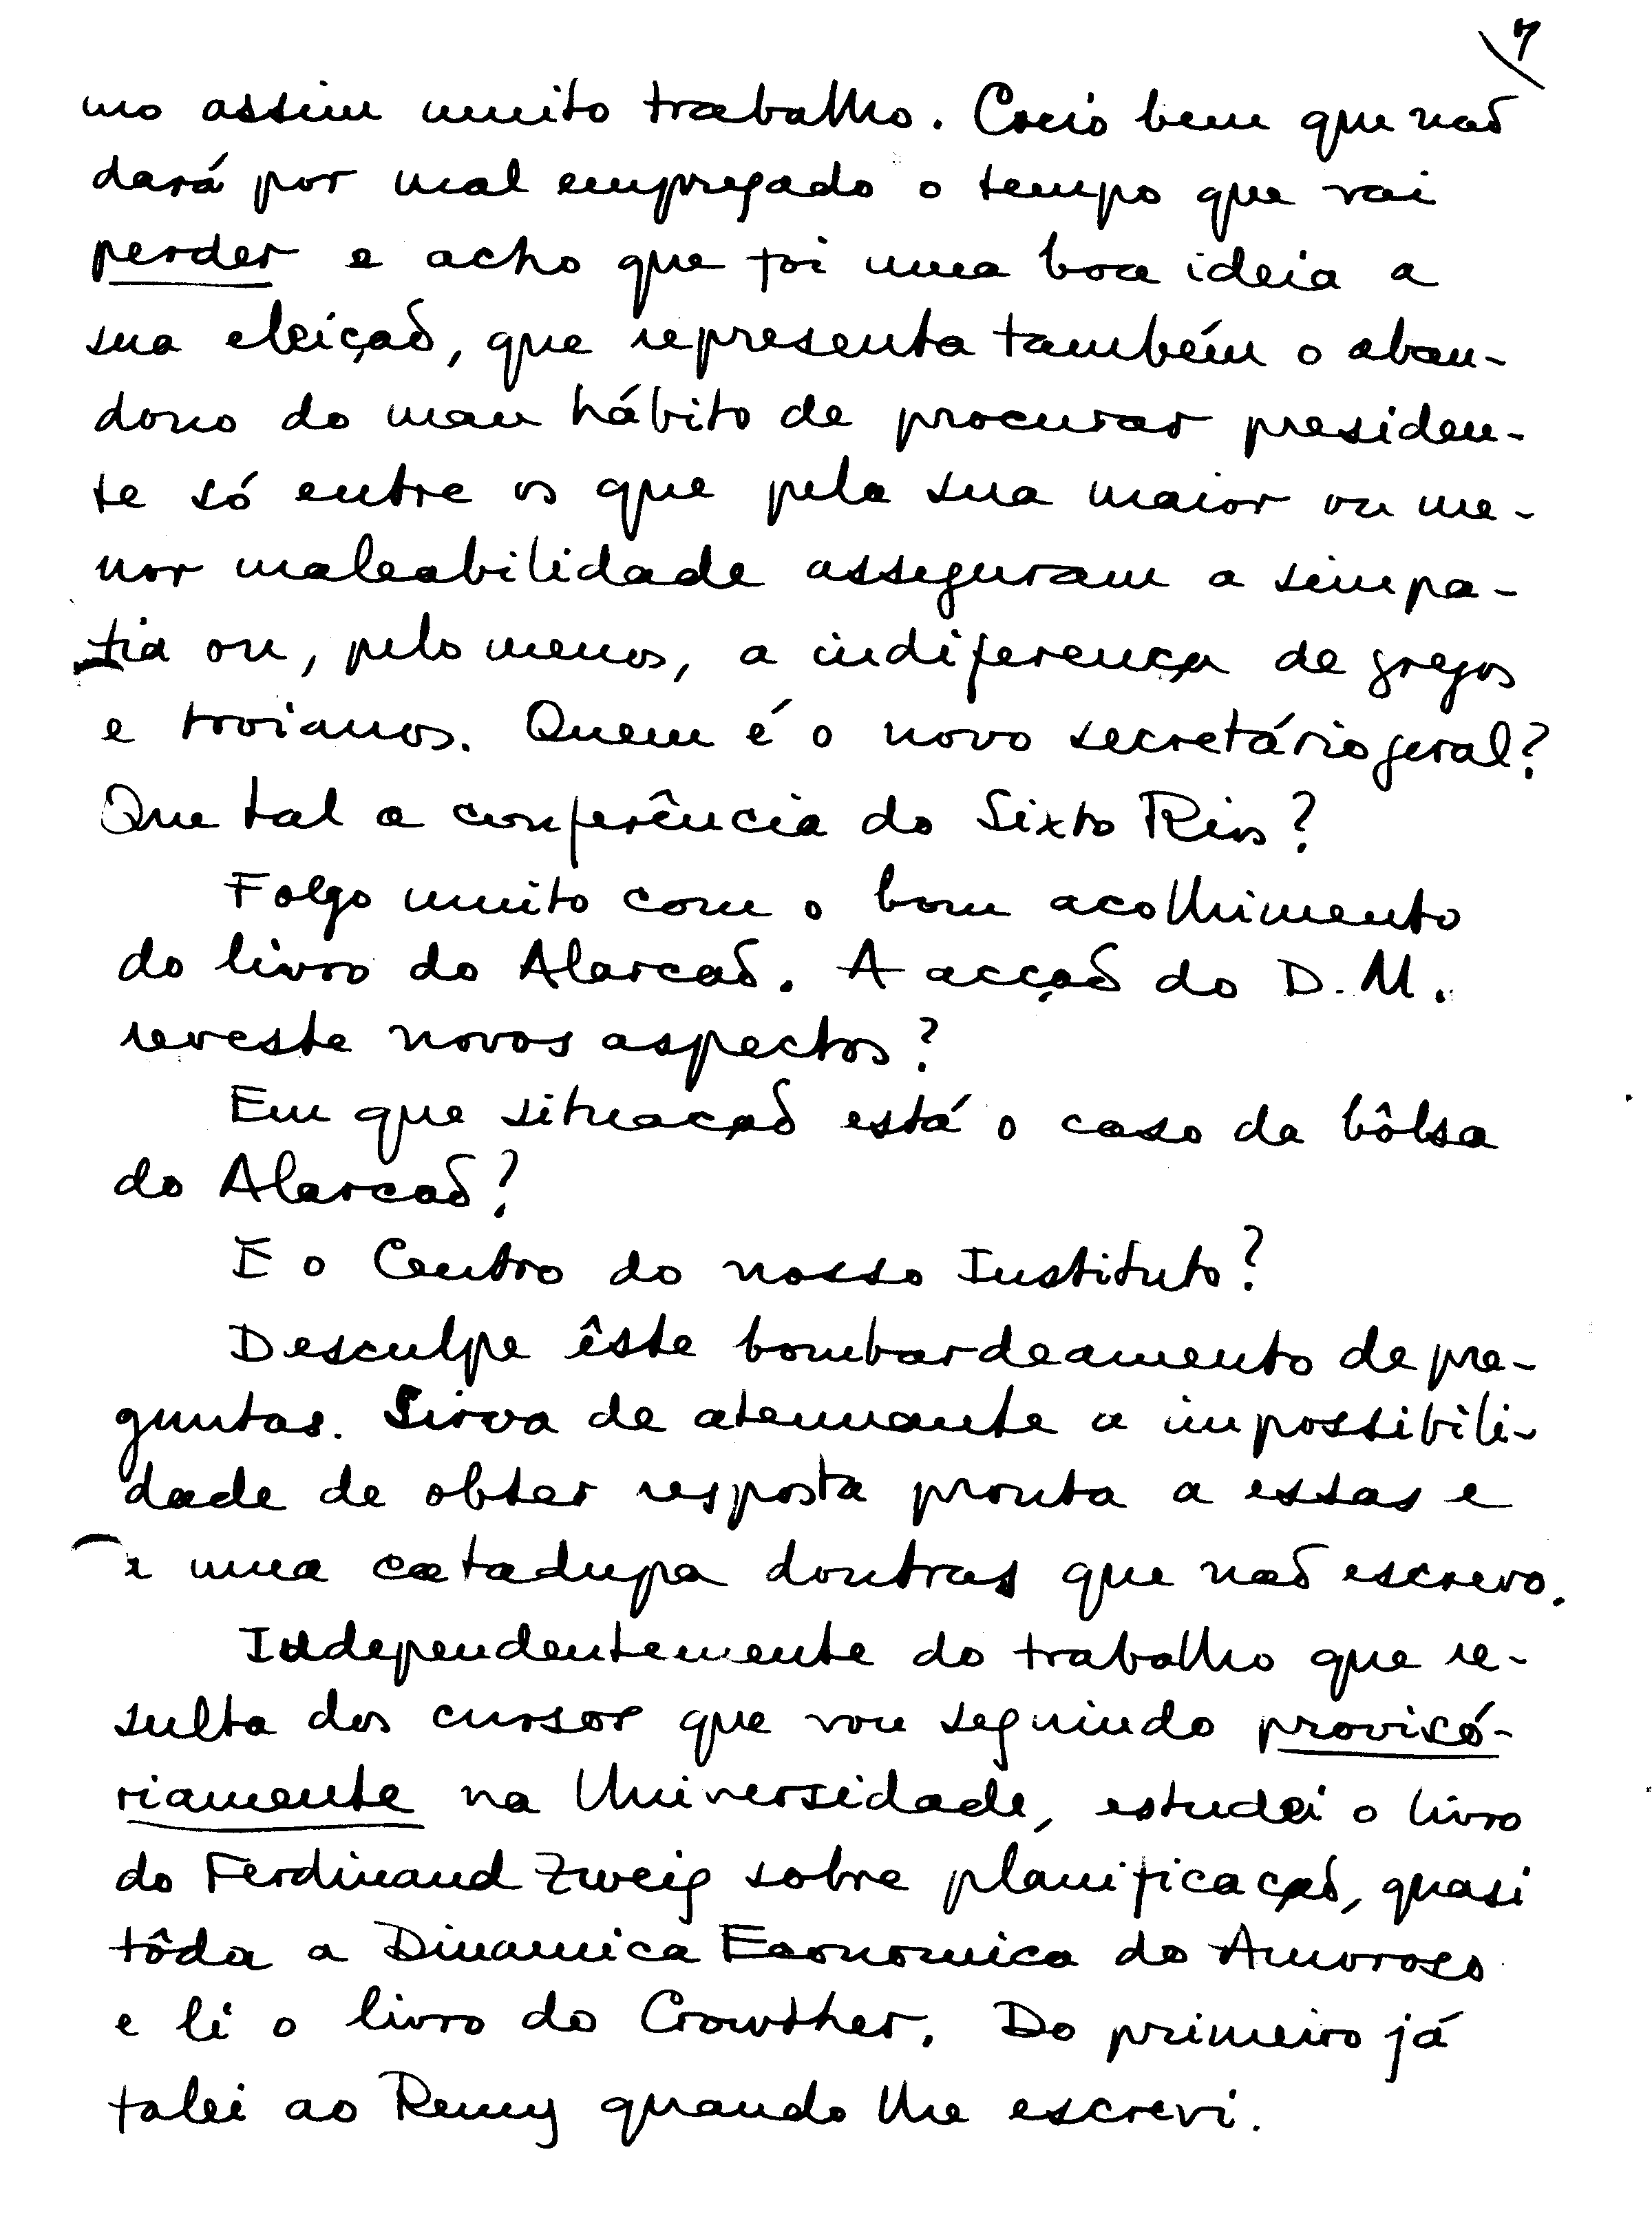 7
mo assim muito trabalho. Creio bem que não
dará por mal empregado o tempo que vai
perder e acho que foi uma boa ideia a
sua eleição, que representa também o aban-
dono do mau hábito de procurar presiden-
te só entre os que pela sua maior ou me-
nor maleabilidade asseguram a simpa-
tia ou, pelo menos, a indiferença de gregos
e troianos. Quem é o novo secretário geral?
Que tal a conferência do Sixto Rios?
Folgo muito com o bom acolhimento
do livro do Alarcão. A acção do D. M.
reveste novos aspectos?
Em que situação está o caso da bôlsa
do Alarcão?
E o Centro do nosso Instituto?
Desculpe êste bombardeamento de pre-
guntas. Sirva de atenuante a impossibili-
dade de obter resposta pronta a essas e
a uma catadupa doutras que não escrevo.
Independentemente do trabalho que re-
sulta dos cursos que vou seguindo provisó-
riamente na Universidade, estudei o livro
do Ferdinand Zweig sobre planificação, quasi
tôda a Dinamica Economica do Amoroso
e li o livro do Crowther. Do primeiro já
falei ao Remy quando lhe escrevi.